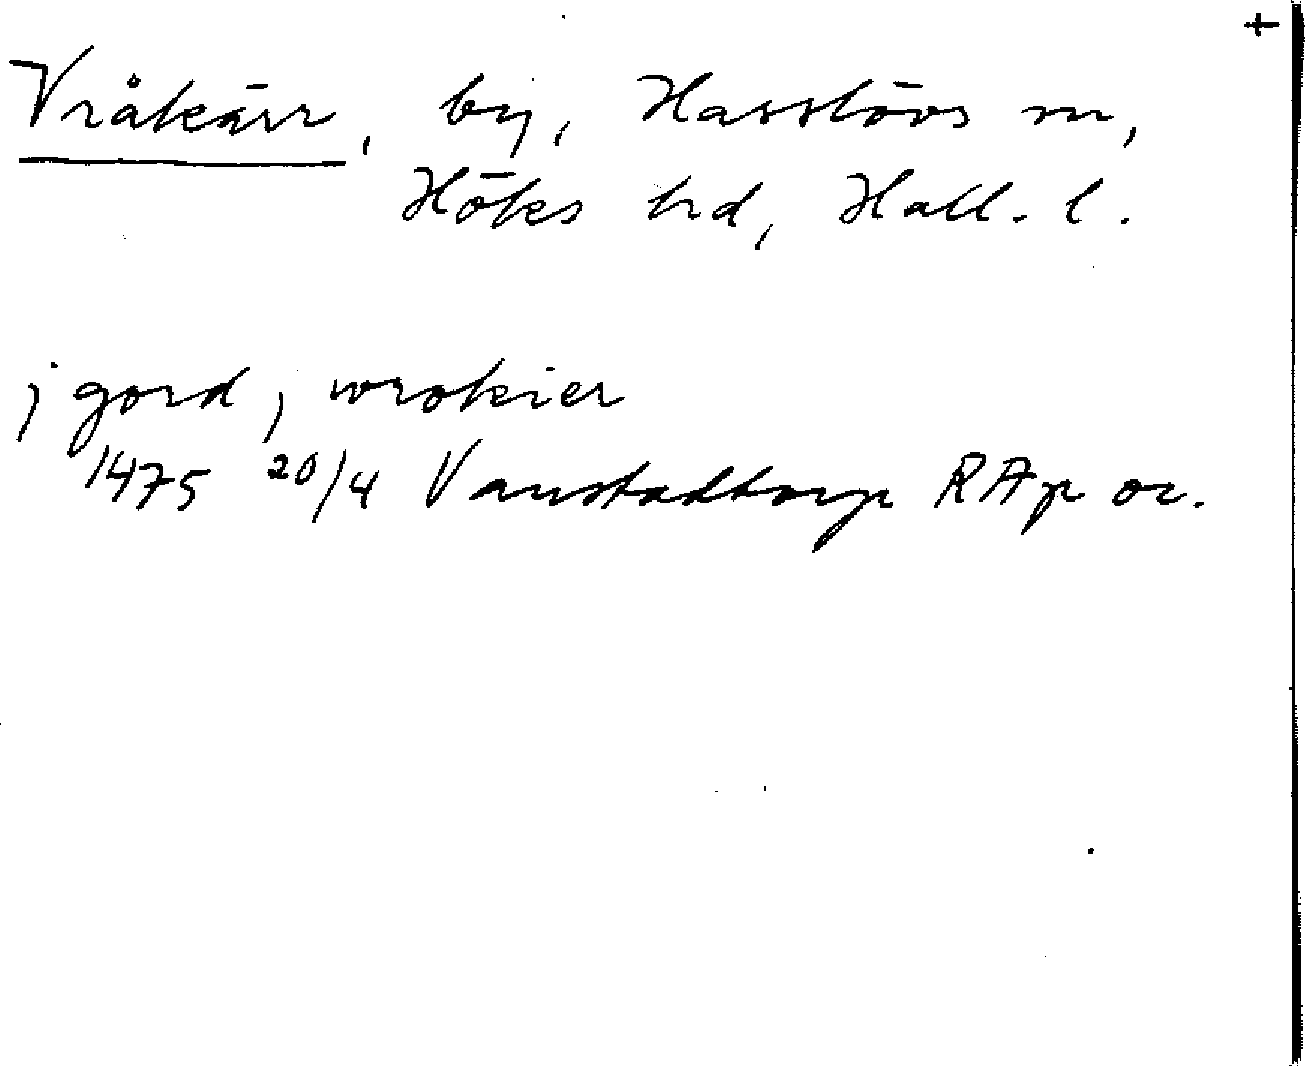 +
Vråkärr, by, Hasslövs sn,
Höks hd, Hall. l.
j gord j wrokier
1475 20/4 Vanstadtorp RAp or.